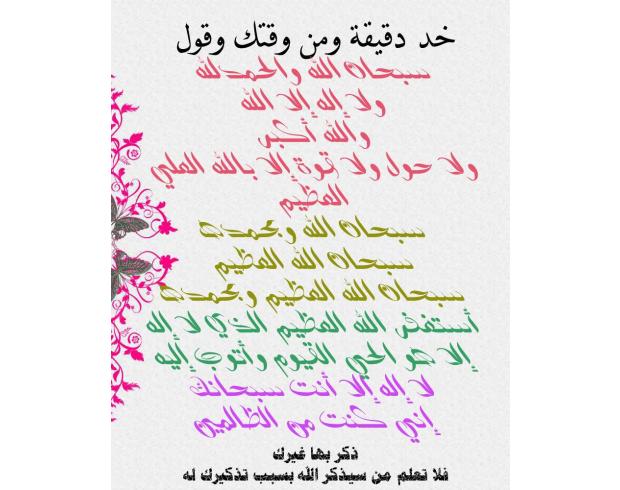 خد دقيقة ومن وقتك وقول
سبحان الله والحمدلله
ولا إله إلا الله
والله أكبر
ولا حول ولا قوة إلا بالله العلي
العظيم
سبحان الله وبحمده
سبحان الله العظيم
سبحان الله العظيم وبحمده
أستغفر الله العظيم الذي لا إله
إلا هو الحي القيوم وأتوب إليه
لا إله إلا أنت سبحانك
إني كنت من الظالمين
ذكر بها غيرك
فلا تعلم من سيذكر الله بسبب تذكيرك له